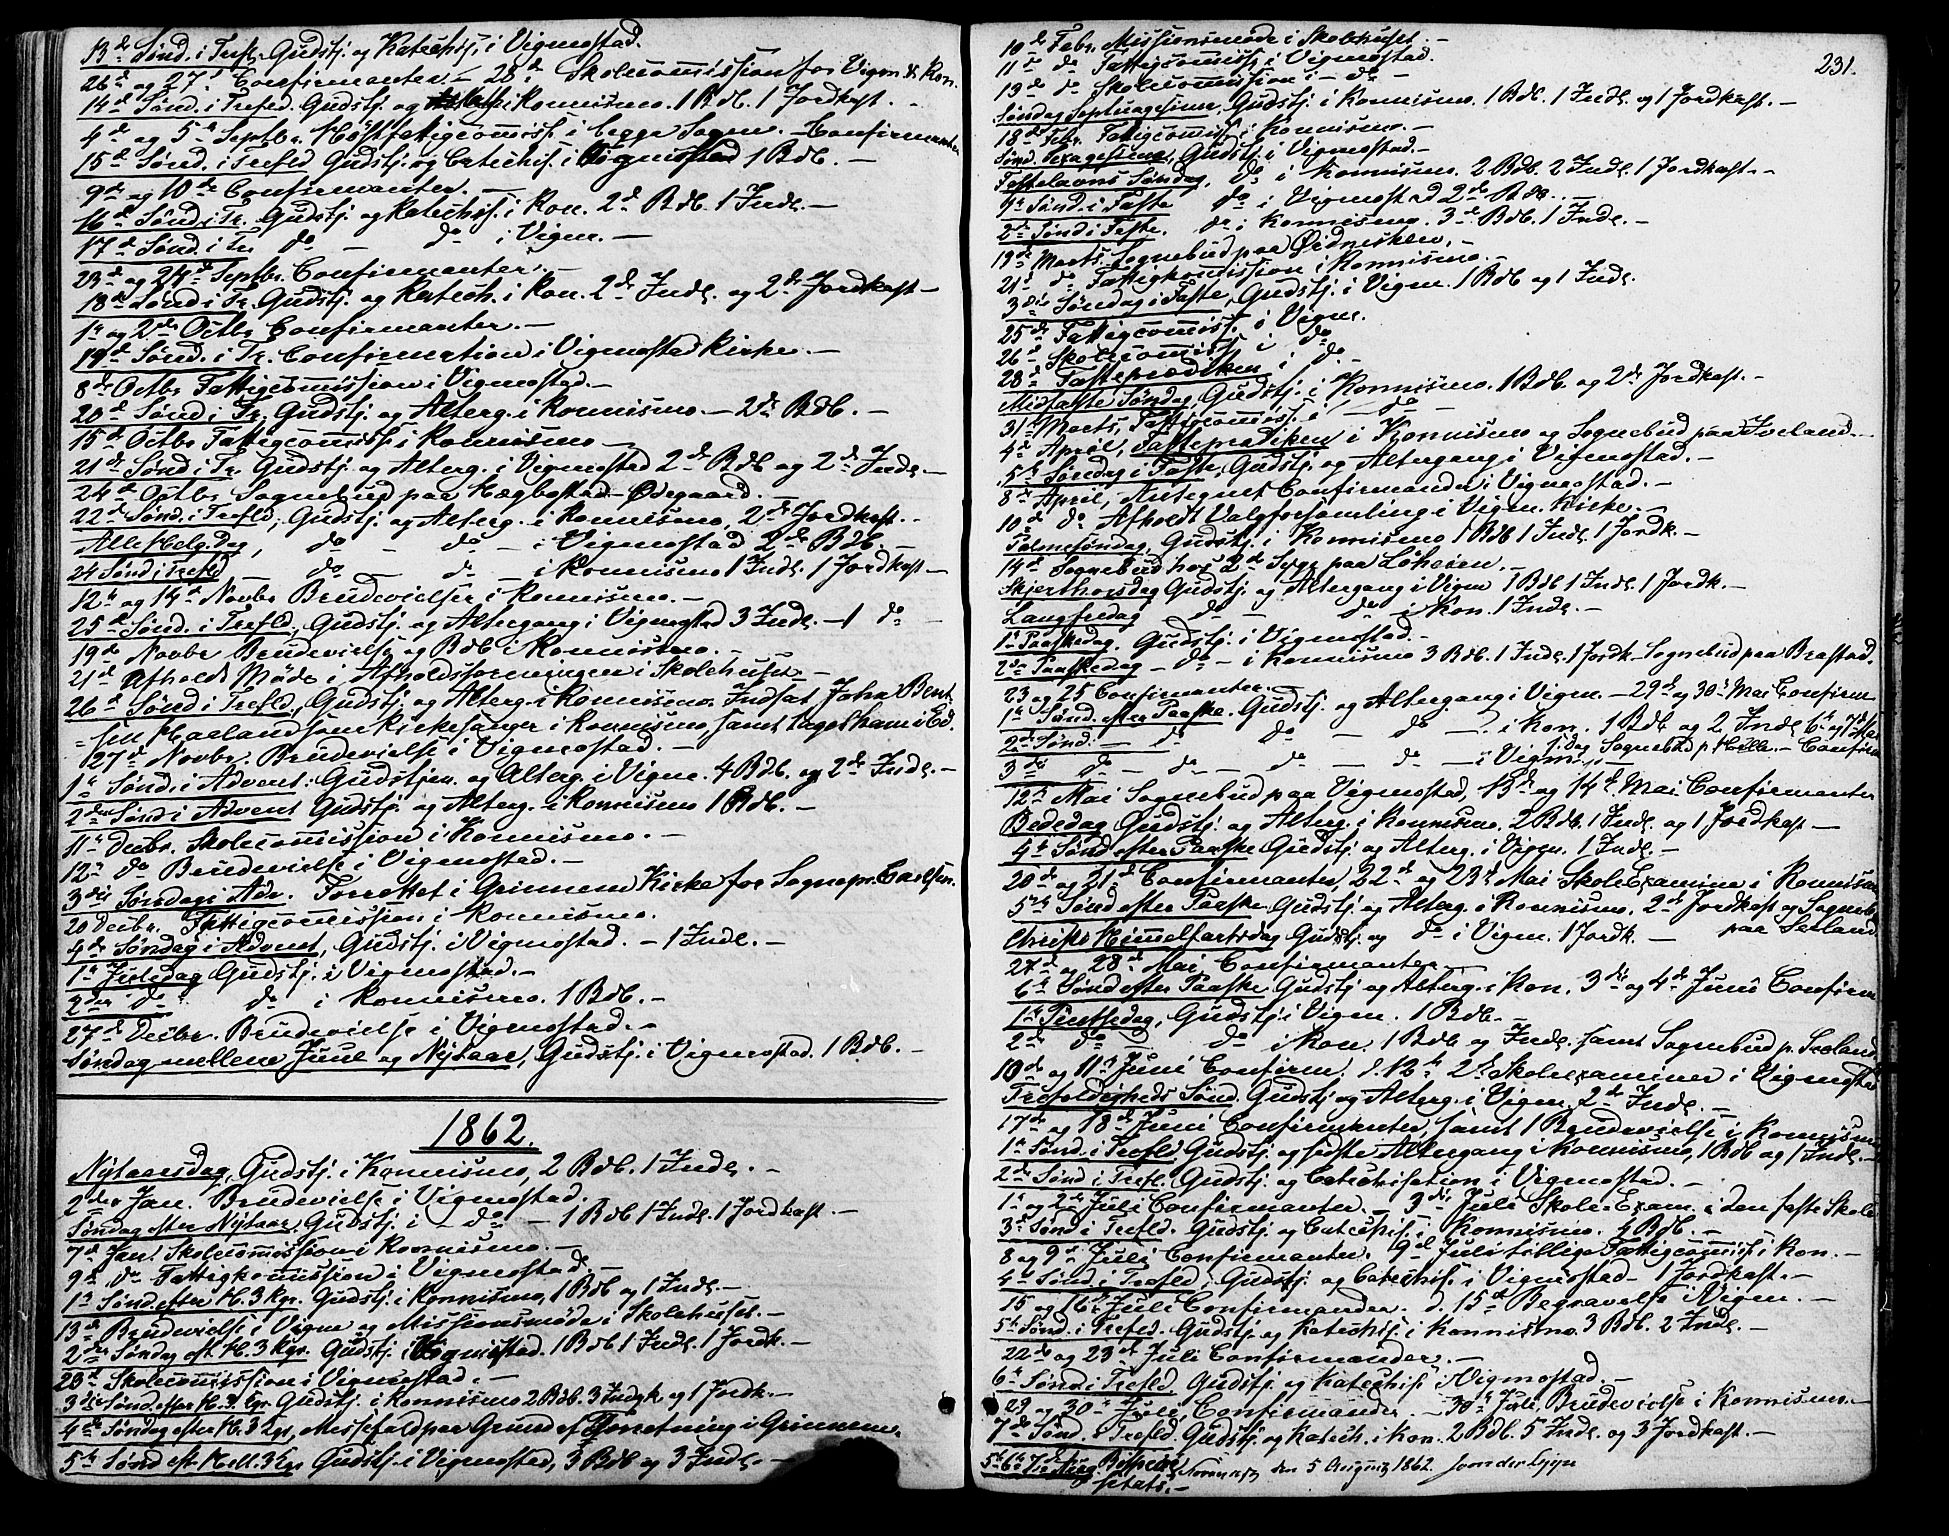 13de Sønd. i Tref. Gudstj. og Katechs. i Vigmostad.
26de og 27de Confirmanter – 28de Skolecomission for Vigm. & Kon.
14de Sønd. i Trefld. Gudstj. og Kat. i Konnismo. 1 Bdb. 1 Jordkast. –
4de og 5te Septbr. Høstfattigcomiss. i begge Sogne. – Confirmanter
15de Sønd. i Trefld Gudstj. og Catechis. i Vigmostad 1 Bdb. –
9de og 10de Confirmanter. –
16de Sønd. i Tr. Gudstj. og Katechs. i Kon. 2de Bdb. 1 Indl. –
17de Sønd. i Tr. do – do i Vigm. –
23de og 24de Septbr. Confirmanter. –
18de Sønd i Tr. Gudstj. og Katech. i Kon. 2de Indl. og 2de Jordkast –
1te og 2den Octbr Confirmanter. –
19de Sønd. i Tr. Confirmation i Vigmostad Kirke. –
8de Octbr Fattigcomission i Vigmostad. –
20de Sønd i Tr. Gudstj. og Alterg. i Konnismo – 2de Bdb. –
15de Octbr Fattigcomiss. i Konnismo –
21de Sønd. i Tr. Gudstj. og Alterg. i Vigmostad 2de Bdb og 2de Indl. –
24de Octbr Sognebud paa Hægbostad – Ødegaard. –
22de Sønd. i Trefld, Gudstj. og Alterg. i Konnismo, 2de Jordkast. –
Alle Helg. Dag, do – do – i Vigmostad 2de Bdb. –
24 Sønd i Trefld do – do – i Konnismo 1 Indl. 1 Jordkast –
12te og 14de Novbr Brudevielse i Konnismo. –
25de Sønd. i Trefld., Gudstj. og Altergang i Vigmostad 3 Indl. – 1 do –
19de Novbr Brudevielse og Bdb i Konnismo. –
21de Afholdt Møde i Afholdsforeningen i Skolehuset –
26de Sønd i Trefld., Gudstj. og Alterg. i Konnismo. Indsat John Bent
= sen Haaland som Kirkesanger i Konnismo, samt taget ham i Ed.
27de Novbr. Brudevielse i Vigmostad. –
1te Sønd. i Advent. Gudstjen. og Alterg. i Vigm. 4 Bdb. og 2de Indl. –
2den Sønd i Advent Gudstj. og Alterg. i Konnismo 1 Bdb. –
11te Decbr. Skolecomission i Konnismo. –
12te do Brudevielse i Vigmostad. –
3die Søndag i Adv. Forrettet i Grinnem Kirke for Sognepr. Carlsen.
20 Decbr. Fattigcomission i Konnismo.
4de Søndag i Advent, Gudstj. i Vigmostad. – 1 Indl. –
1te Juledag Gudstj. i Vigmostad. –
2den do do i Konnismo. 1 Bdb. –
27de Decbr. Brudevielse i Vigmostad. –
Søndag mellem Juul og Nytaar, Gudstj. i Vigmostad. 1 Bdb. –
1862.
Nytaarsdag, Gudstj. i Konnismo, 2 Bdb. 1 Indl. –
2den Jan. Brudevielse i Vigmostad.
Søndag efter Nytaar Gudstj. i – do – 1 Bdb 1 Indl. 1 Jordkast. –
7de Jan. Skolecomission i Konnismo. –
9de do Fattigkomission i Vigmostad. –
1te Sønd. efter H. 3 Kgr. Gudstj. i Konnismo, 1 Bdb og 1 Indl. –
13de Brudevielse i Vigm og Missionsmøde i Skolehuset. –
2den Søndag eft. H. 3 Kgr. Gudstj. i Vigmostad. 1 Bdb 1 Indl. 1 Jordk. –
23de Skolecomission i Vigmostad. –
3die Sønd. efter H. 3. Kgr. Gudstj. i Konnismo 2 Bdb. 3 Indgk og 1 Jordk. –
4de Søndag efter H. 3 Kgr, Messefald paa Grund af Forretning i Grinnem.
5te Sønd eft. Hell. 3 Kgr Gudstj. i Vigmostad, 3 Bdb og 3 Indl. –
231.
10de Febr. Missionsmøde i Skolehuset. –
11te do Fattigcomiss. i Vigmostad.
13de do Skolecomission i – do –
Søndag Septuagesima, Gudstj. i Konnismo. 1 Bdb. 1 Indl. og 1 Jordkast. –
18de Febr. Fattigcomiss. i Konnismo. –
Sønd. Sexagesima, Gudstj. i Vigmostad. –
Fastelavns Søndag, do i Konnismo. 2 Bdb. 2 Indl. 1 Jordkast. –
1te Sønd. i Faste do i Vigmostad 2de Bdb. –
2den Sønd i Faste. do i Konnismo. 3de Bdb. 1 Indl. –
19de Marts. Sognebud paa Øidneskleiv. –
21de do Fattigkomission i Konnismo. –
3die Søndag i Faste, Gudstj. i Vigm. 1 Bdb og 1 Indl.
25de Fattigcomiss. i Vigm.
26de Skolecomiss. i do
28de Fasteprædiken i do –
Midfaste Søndag, Gudstj. i Konnismo. 1 Bdb. og 2de Jordkast. –
31te Marts, Fattigcomiss. i – do –
4de April, Fasteprædiken i Konnismo og Sognebud paa Iveland. –
5te Søndag i Faste, Gudstj. og Altergang i Vigmostad. –
8de April, Antegnet Confirmander i Vigmostad. –
10de do Afholdt Valgforsamling i Vigm. Kirke. –
Palmesøndag, Gudstj. i Konnismo 1 Bdb 1 Indl. 1 Jordk. –
14de Sognebud hos 2de Syge paa Løheien. –
Skjerthorsdag Gudstj. og Altergang i Vigm 1 Bdb 1 Indl. 1 Jordk. –
Langfredag do do i Kon. 1 Indl. –
1te Paaskedag. Gudstj. i Vigmostad. –
2den Paaskedag – do – i Konnismo 3 Bdb. 1 Indl. 1 Jordk. Sognebud paa Brastad.
23 og 25 Confirmanter. –
1te Sønd. efter Paaske. Gudstj. og Altergang i Vigm. – 29de og 30te Mai Confirm
2den Sønd. – do do – do – i Kon. 1 Bdb og 2 Indl 6te og 7de Mai
3die do – do – do – do – i Vigm. – i dag Sognebud p. Hille. – Confirm
12te Mai Sognebud paa Vigmostad, 13de og 14de Mai Confirmanter
Bededag Gudstj. og Alterg. i Konnismo. 2 Bdb. 1 Indl. og 1 Jordkast –
4de Sønd efter Paaske Gudstj. og Alterg. i Vigm. 1 Indl. –
20de og 21de Confirmanter, 22de og 23de Mai Skole Examina i Konnism
5te Sønd efter Paaske. Gudstj. og Alterg. i Konnismo. 2de Jordkast og Sogneb.
Christi Himmelfartsdag Gudstj. og do i Vigm. 1 Jordk. – paa Seeland
27de og 28de Mai Confirmanter –
6te Sønd efter Paaske Gudstj. og Alterg. i Kon. 3die og 4de Juni Confirm
1te Pintsedag, Gudstj. i Vigm. 1 Bdb. –
2den do do i Kon. 1 Bdb og Indl. samt Sognebud p. Seeland
10de og 11te Juni Confirm. d. 12te 2de Skoleexaminer i Vigmostad
Trefoldigheds Sønd. Gudstj. og Alterg. i Vigm. 2de Indl. –
17de og 18de Juni Confirmanter, samt 1 Brudevielse i Konnismo
1te Sønd. i Trefld. Gudstj. og sidste Altergang i Konnismo, 1 Bdb og 1 Indl. –
2den Sønd. i Trefl. Gudstj. og Catechisation i Vigmostad. –
1te og 2den Juli Confirmanter. – 3die Juli Skole-Exam. i den faste Skole
3de Sønd i Trefld. Gudstj. og Catechis. i Konnismo. 4 Bdb. –
8 og 9de Juli Confirmanter. 9de Juli tillige Fattigcomiss. i Kon. –
4de Sønd. i Trefld, Gudstj. og Catechis. i Vigmostad – 1 Jordkast. –
15 og 16de Juli Confirmander. d. 15de Begravelse i Vigm. –
5te Sønd. i Trefld. Gudstj. og Katechs. i Konnismo. 3 Bdb. 2 Indl. –
22de og 23de Juli Confirmander. –
6te Sønd i Trefld Gudstj. og Katechis i Vigmostad. –
29 og 30te Juli, Confirmander – 30te Juli, Brudevielse i Konnismo. –
7de Sønd. i Trefld. Gudstj. og Katech. i Kon. 2 Bdb. 5 Indl. og 3 Jordkast. –
5te 6te 7de Aug. Bispevisitats. – den 5 August 1862. von der Lippe